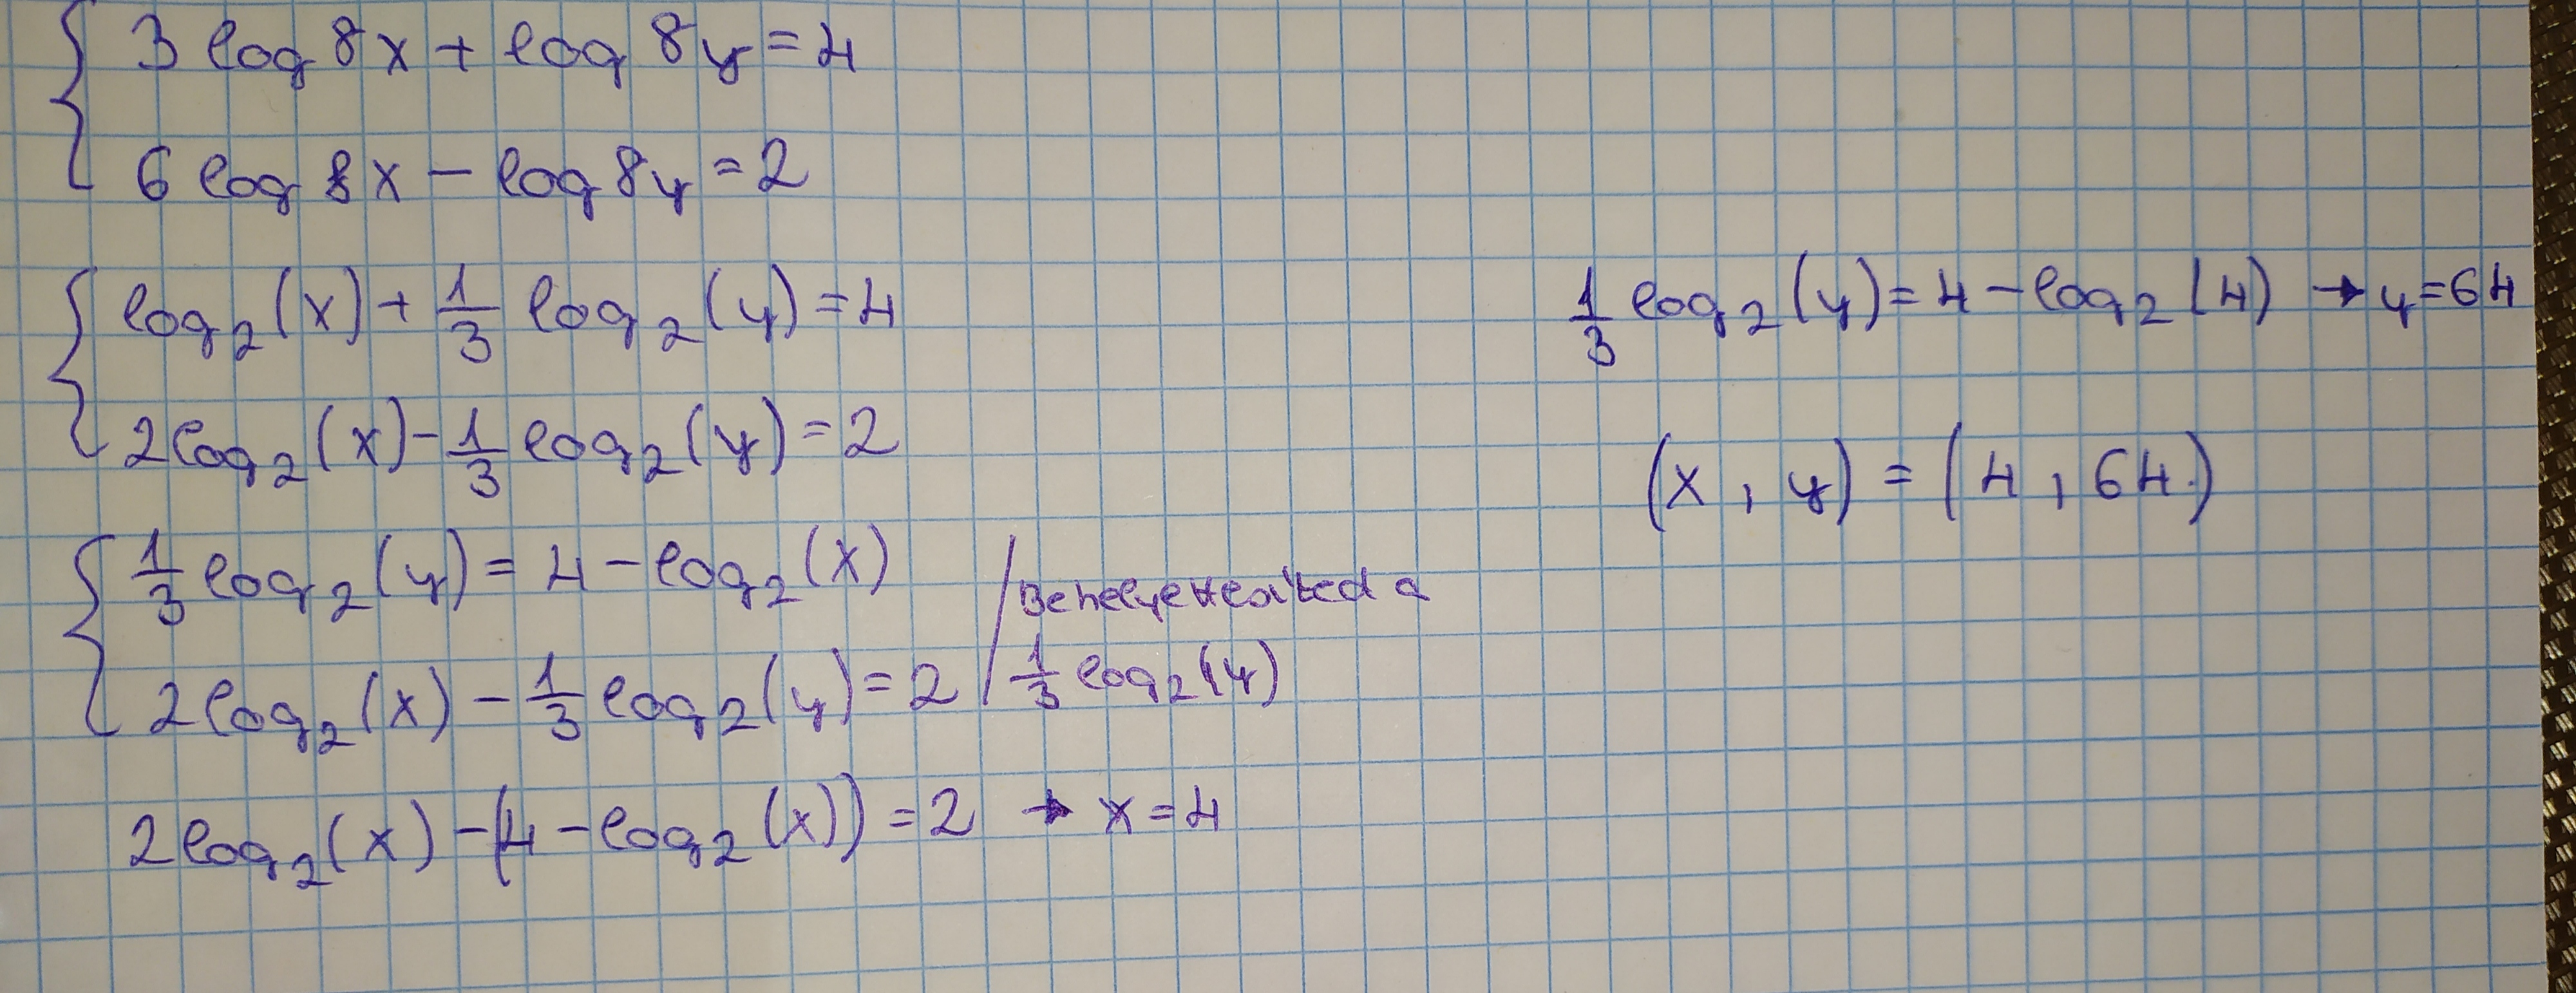 3 log 8x + log 8y = 4
6 log 8x - log 8y = 2
log₂(x) + 1/3 log₂(y) = 4
2log₂(x) - 1/3 log₂(y) = 2
1/3 log₂(y) = 4 - log₂(x)
2log₂(x) - 1/3 log₂(y) = 2 / Behelyettesíted a 1/3 log₂(y)
2log₂(x) - (4 - log₂(x)) = 2 → x = 4
1/3 log₂(y) = 4 - log₂(4) → y = 64
(x, y) = (4, 64)